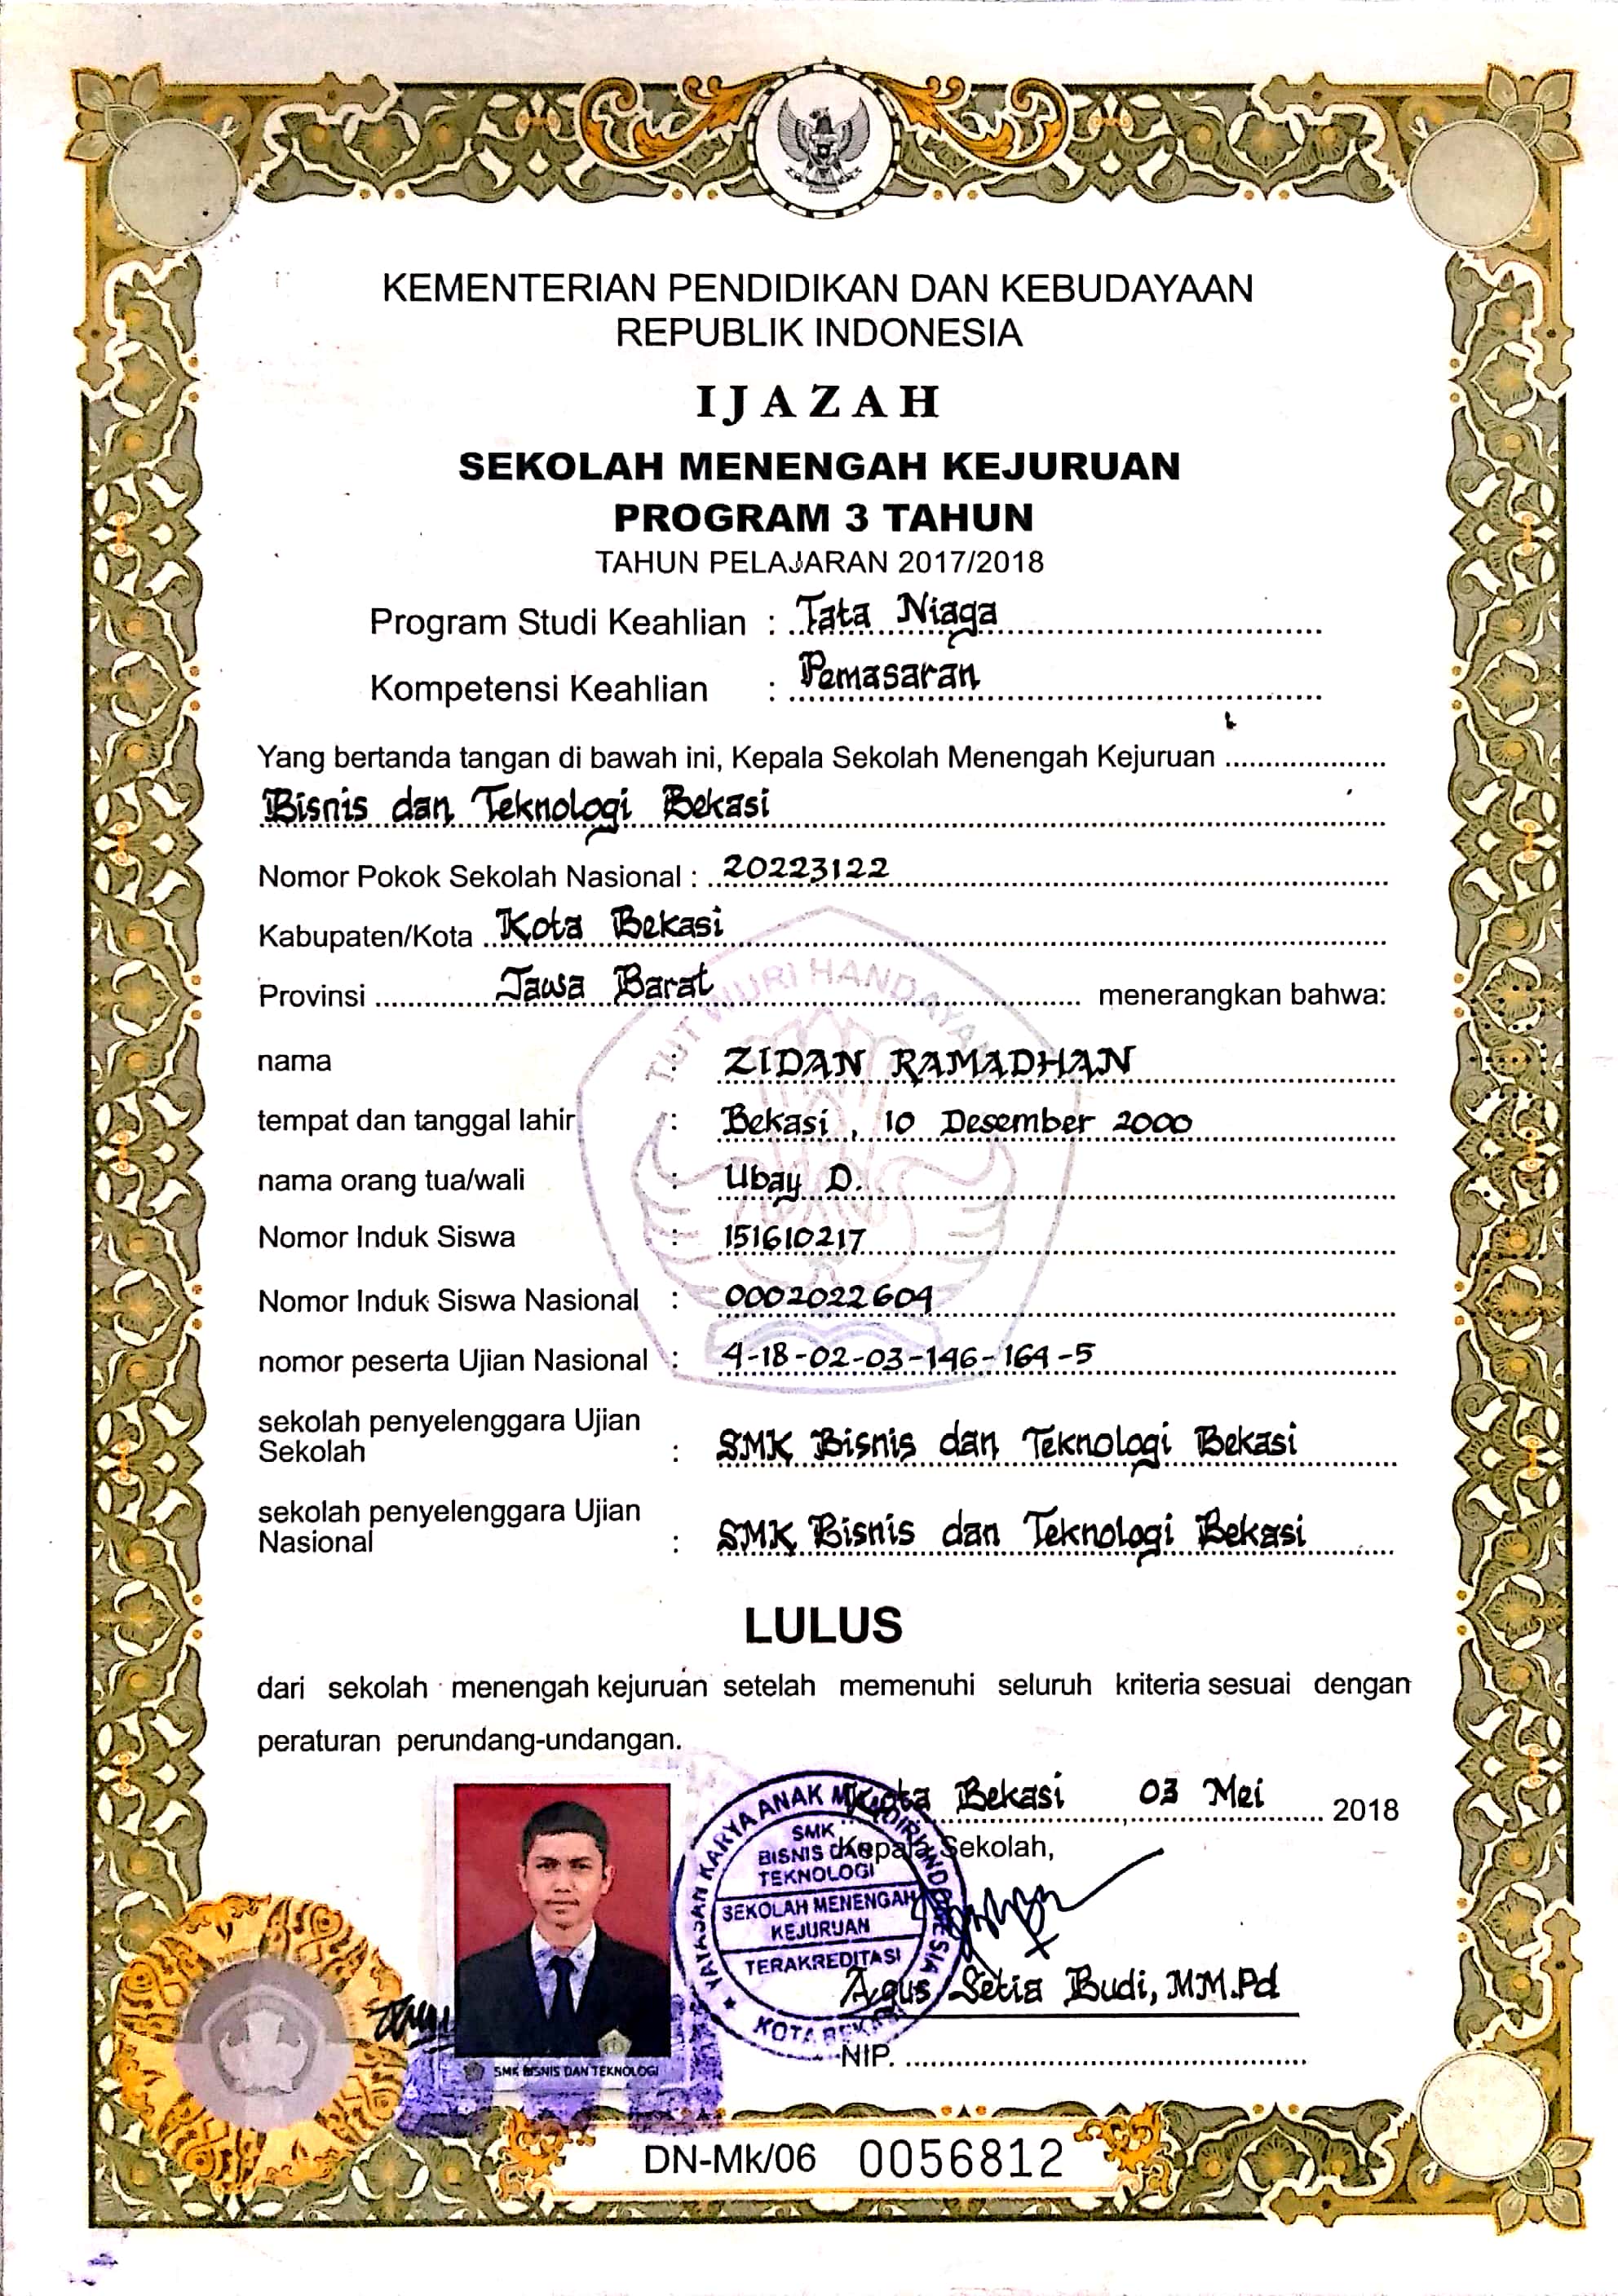 KEMENTERIAN PENDIDIKAN DAN KEBUDAYAAN
REPUBLIK INDONESIA
IJAZAH
SEKOLAH MENENGAH KEJURUAN
PROGRAM 3 TAHUN
TAHUN PELAJARAN 2017/2018
Program Studi Keahlian : Tata Niaga
Kompetensi Keahlian : Pemasaran
Yang bertanda tangan di bawah ini, Kepala Sekolah Menengah Kejuruan
Bisnis dan Teknologi Bekasi
Nomor Pokok Sekolah Nasional : 20223122
Kabupaten/Kota Kota Bekasi
Provinsi Jawa Barat menerangkan bahwa:
TUT WURI HANDAYANI
nama : ZIDAN RAMADHAN
tempat dan tanggal lahir : Bekasi, 10 Desember 2000
nama orang tua/wali : Ubay D.
Nomor Induk Siswa : 151610217
Nomor Induk Siswa Nasional : 0002022604
nomor peserta Ujian Nasional : 4-18-02-03-146-164-5
sekolah penyelenggara Ujian
Sekolah : SMK Bisnis dan Teknologi Bekasi
sekolah penyelenggara Ujian
Nasional : SMK Bisnis dan Teknologi Bekasi
LULUS
dari sekolah menengah kejuruan setelah memenuhi seluruh kriteria sesuai dengan
peraturan perundang-undangan.
Kota Bekasi, 03 Mei 2018
Kepala Sekolah,
YAYASAN KARYA ANAK MANDIRI INDONESIA
SMK
BISNIS DAN
TEKNOLOGI
SEKOLAH MENENGAH
KEJURUAN
TERAKREDITASI
KOTA BEKASI
Agus Setia Budi, MM.Pd
NIP.
SMK BISNIS DAN TEKNOLOGI
DN-Mk/06 0056812